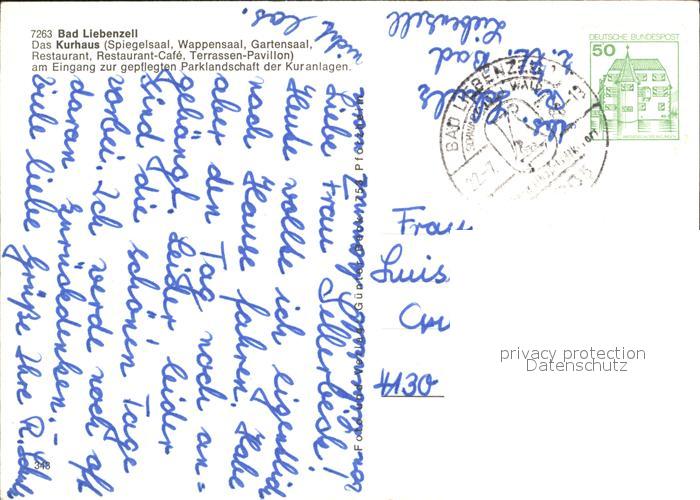 7263 Bad Liebenzell
Das Kurhaus (Spiegelsaal, Wappensaal, Gartensaal,
Restaurant, Restaurant-Café, Terrassen-Pavillon)
am Eingang zur gepflegten Parklandschaft der Kuranlagen.
Liebe Frau Sellerbeck!
Heute wollte ich eigentlich
nach Hause fahren. Habe
aber den Tag noch an=
gehängt. Leider, leider
sind die schönen Tage
vorbei. Ich werde noch oft
daran zurückdenken.–
Viele liebe Grüße Ihre R. Schulz
nicht los.
z. Zt. Bad
Liebenzell
DEUTSCHE BUNDESPOST
50
BAD LIEBENZELL
Frau
Luis
4130
privacy protection
Datenschutz
348